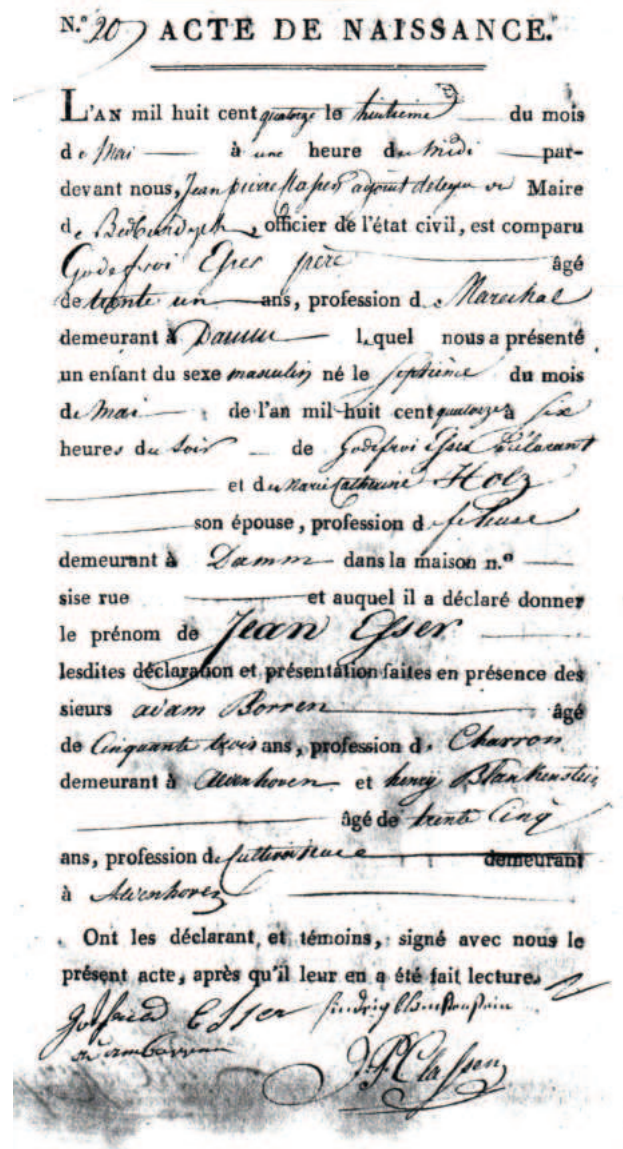 N.º 20 ACTE DE NAISSANCE.
L'AN mil huit cent quatorze le huitieme du mois
de Mai à une heure de Midi par-
devant nous, Jean pierre Classen adjoint délégué de Maire
de Bedburdyck, officier de l'état civil, est comparu
Godefroi Esser père âgé
de trente un ans, profession de Marechal
demeurant à Damm lequel nous a présenté
un enfant du sexe masculin né le septième du mois
de Mai de l'an mil huit cent quatorze à six
heures du soir de Godefroi Esser Déclarant
et de Marie Catherine Holz
son épouse, profession de
demeurant à Damm dans la maison n.º
sise rue et auquel il a déclaré donner
le prénom de Jean Esser
lesdites déclaration et présentation faites en présence des
sieurs adam Borren âgé
de Cinquante trois ans, profession de Charron
demeurant à Aldenhoven et henry Blankenstein
âgé de trente Cinq
ans, profession de Cultivateur demeurant
à Aldenhoven
Ont les déclarant et témoins, signé avec nous le
présent acte, après qu'il leur en a été fait lecture.
Gotfried Esser
J.P. Classen